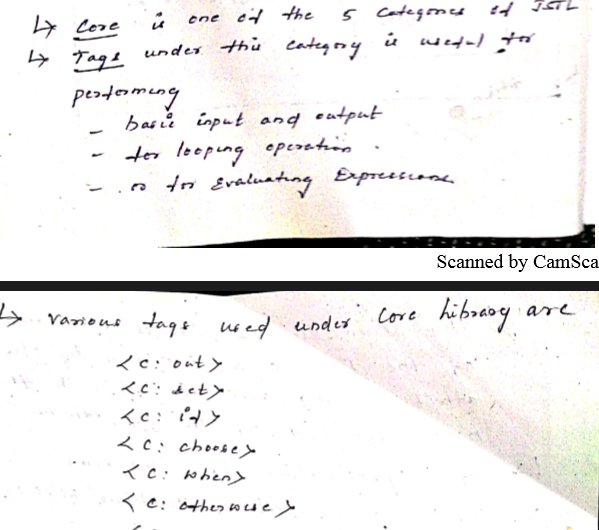 ↳ Core is one of the 5 Categories of JSTL
↳ Tags under this category is useful for
performing
- basic input and output
- for looping operation.
- or for Evaluating Expressions
Scanned by CamSca
↳ various tags used under core library are
<c: out>
<c: set>
<c: if>
<c: choose>
<c: when>
<c: otherwise>